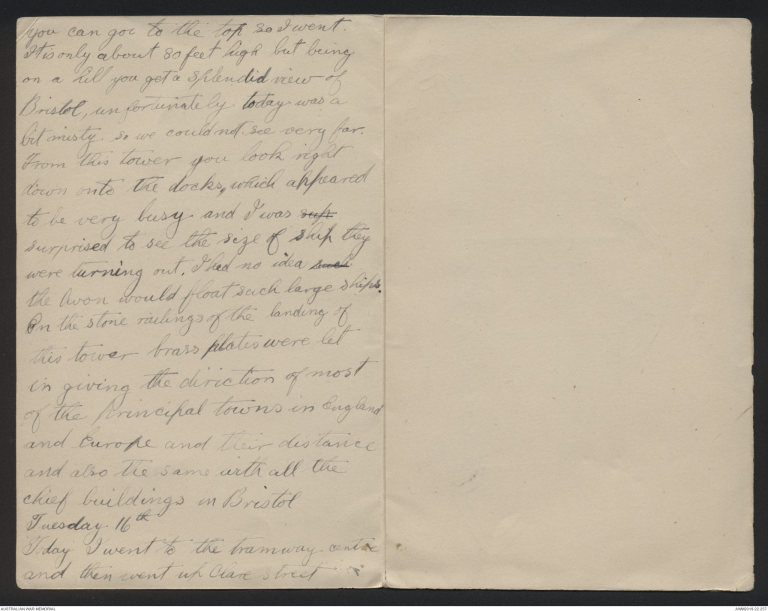 you can goi to the top so I went.
It is only about 80 feet high but being
on a hill you get a splendid view of
Bristol, unfortunately today was a
bit misty. so we could not see very far.
From this tower you look right
down onto the docks, which appeared
to be very busy and I was sup
surprised to see the size of ship they
were turning out. I had no idea such
the Avon would float such large ships.
On the stone railings of the landing of
this tower brass plates were let
in giving the diriction of most
of the principal towns in England
and Europe and their distance
and also the same with all the
chief buildings in Bristol
Tuesday. 16th
Today I went to the tramway centre
and then went up Clare street
AUSTRALIAN WAR MEMORIAL